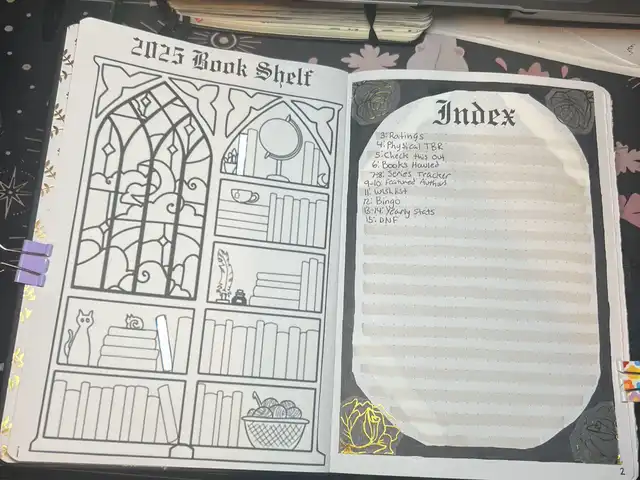 2025 Book Shelf
Index
3: Ratings
4: Physical TBR
5: Check this Out
6: Books Hauled
7-8: Series Tracker
9-10: Featured Author
11: Wishlist
12: Bingo
13-14: Yearly Stats
15: DNF
1
2